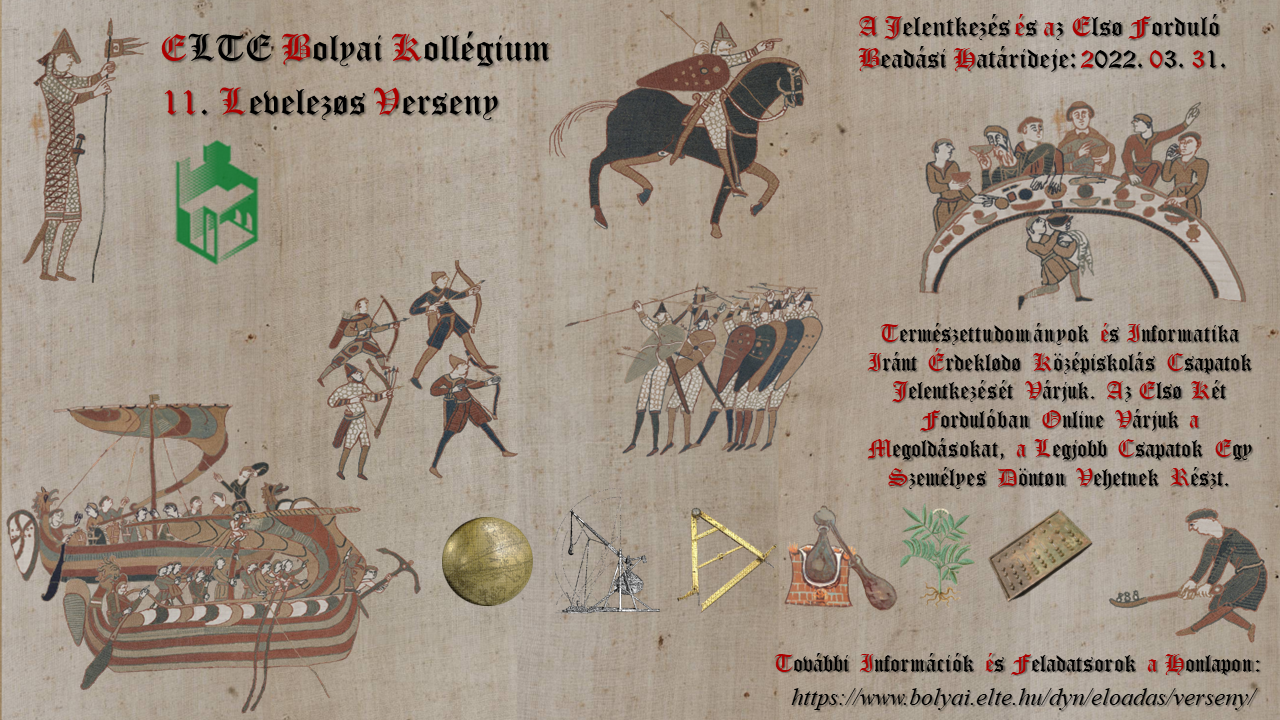 ELTE Bolyai Kollégium
11. Levelezøs Verseny
A Jelentkezés és az Elsø Forduló
Beadási Határideje: 2022. 03. 31.
Természettudományok és Informatika
Iránt Érdeklødø Középiskolás Csapatok
Jelentkezését Várjuk. Az Elsø Két
Fordulóban Online Várjuk a
Megoldásokat, a Legjobb Csapatok Egy
Személyes Döntøn Vehetnek Részt.
További Információk és Feladatsorok a Honlapon:
https://www.bolyai.elte.hu/dyn/eloadas/verseny/